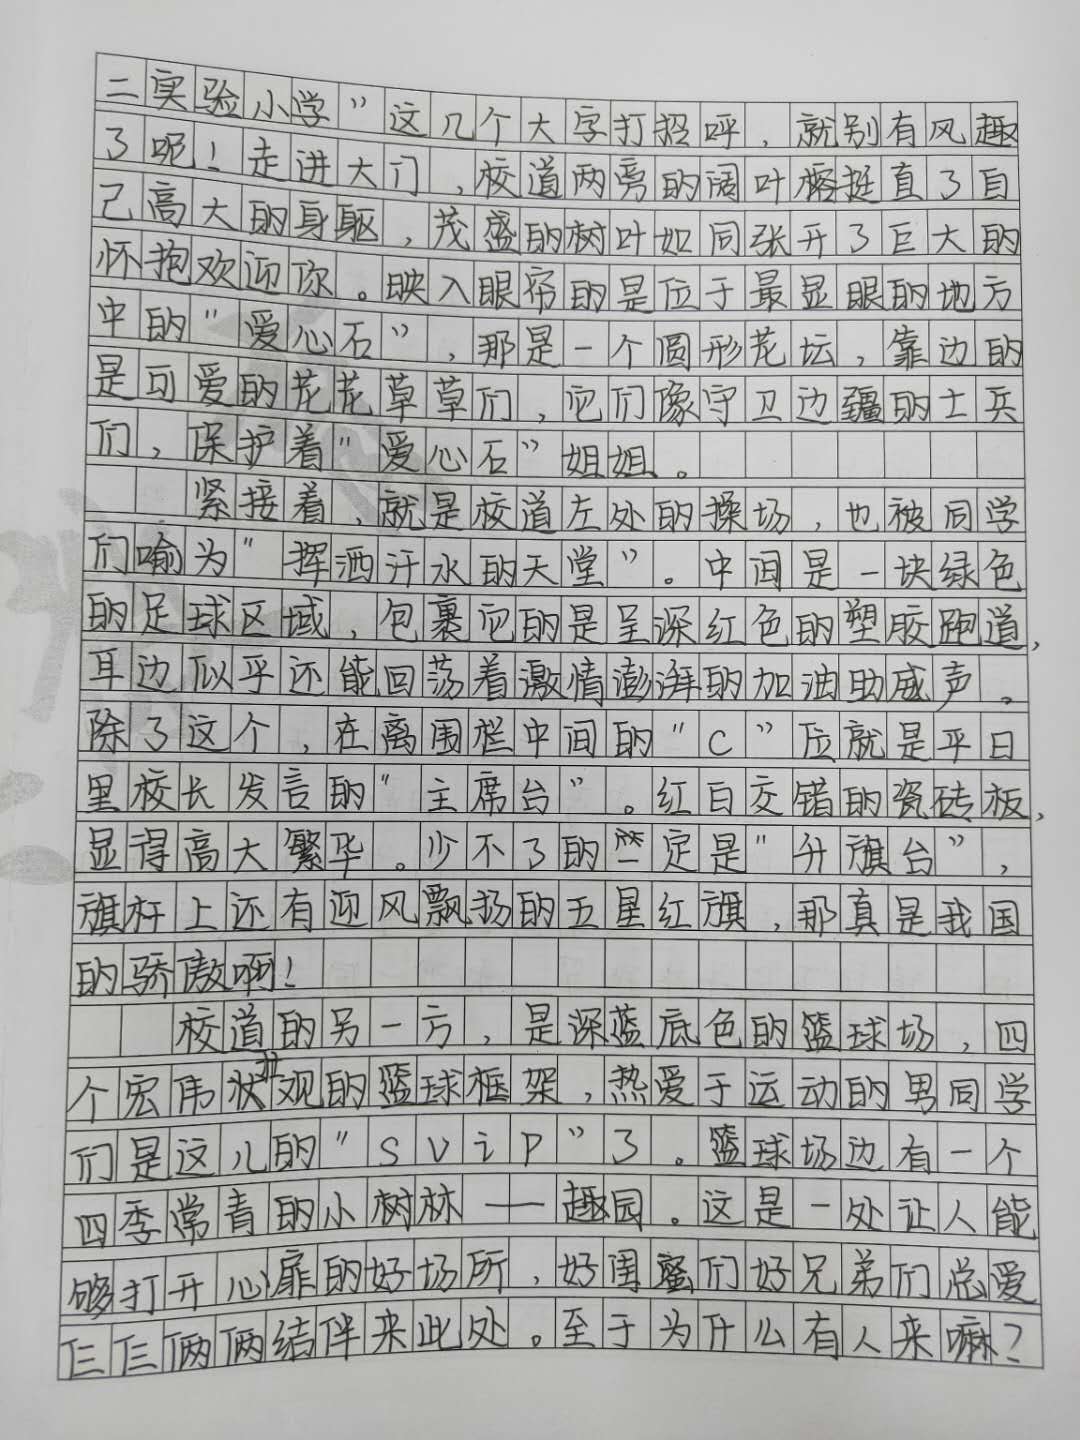 二实验小学”这几个大字打招呼，就别有风趣
了呢！走进大门，校道两旁的阔叶榕挺直了自
己高大的身躯，茂盛的树叶如同张开了巨大的
怀抱欢迎你。映入眼帘的是位于最显眼的地方
中的“爱心石”，那是一个圆形花坛，靠边的
是可爱的花花草草们，它们像守卫边疆的士兵
们，保护着“爱心石”姐姐。
紧接着，就是校道左处的操场，也被同学
们喻为“挥洒汗水的天堂”。中间是一块绿色
的足球区域，包裹它的是呈深红色的塑胶跑道，
耳边似乎还能回荡着激情澎湃的加油助威声。
除了这个，在离围栏中间的“C”应就是平日
里校长发言的“主席台”。红白交错的瓷砖板，
显得高大繁华。少不了的一定是“升旗台”，
旗杆上还有迎风飘扬的五星红旗，那真是我国
的骄傲啊！
校道的另一方，是深蓝底色的篮球场，四
个宏伟壮观的篮球框架，热爱于运动的男同学
们是这儿的“svip”了。篮球场边有一个
四季常青的小树林——趣园。这是一处让人能
够打开心扉的好场所，好闺蜜们好兄弟们总爱
仨仨俩俩结伴来此处。至于为什么有人来嘛？